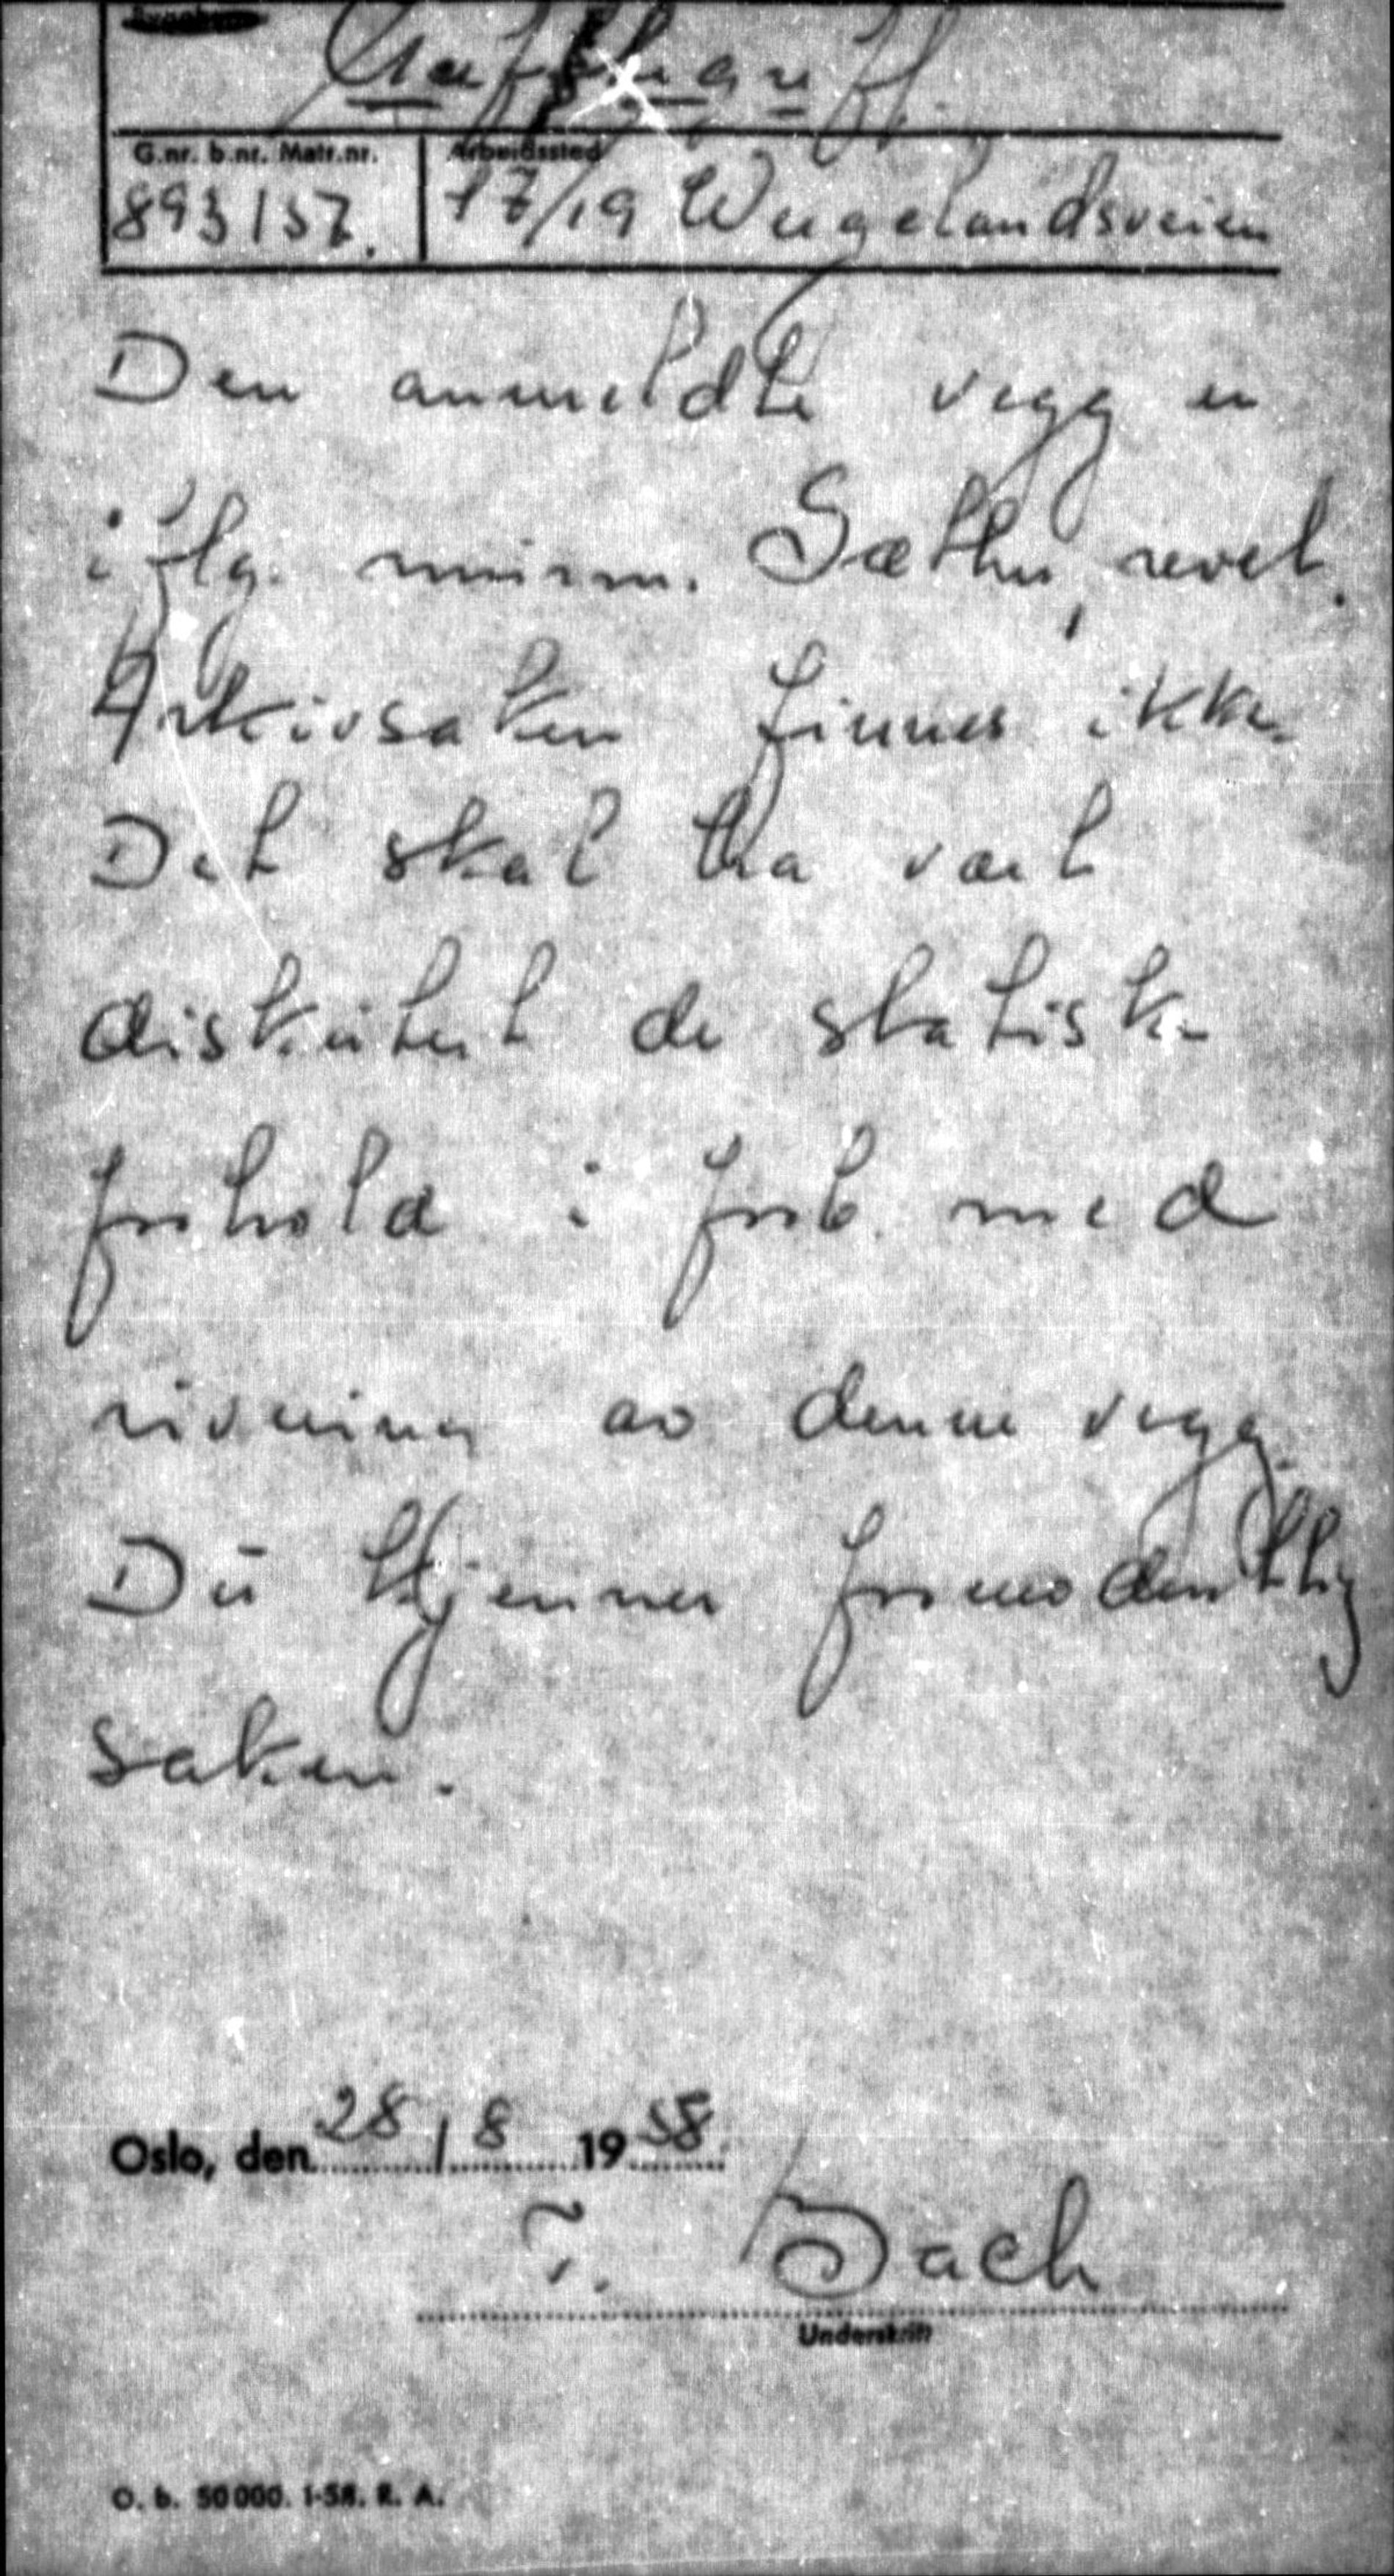 G.nr. b.nr. Matr.nr. Arbeidssted
893/57. 17/19 Wergelandsveien
Den anmeldte vegg er
iflg. murm. Sæther, revet.
Arkivsaken finnes ikke.
Det skal ha vært
diskutert de statiske
forhold i forb. med
rivning av denne vegg.
Du kjenner formodentlig
saken.
Oslo, den 28/8 1958.
T. Bach
Underskrift
O. b. 50000. 1-58. R. A.